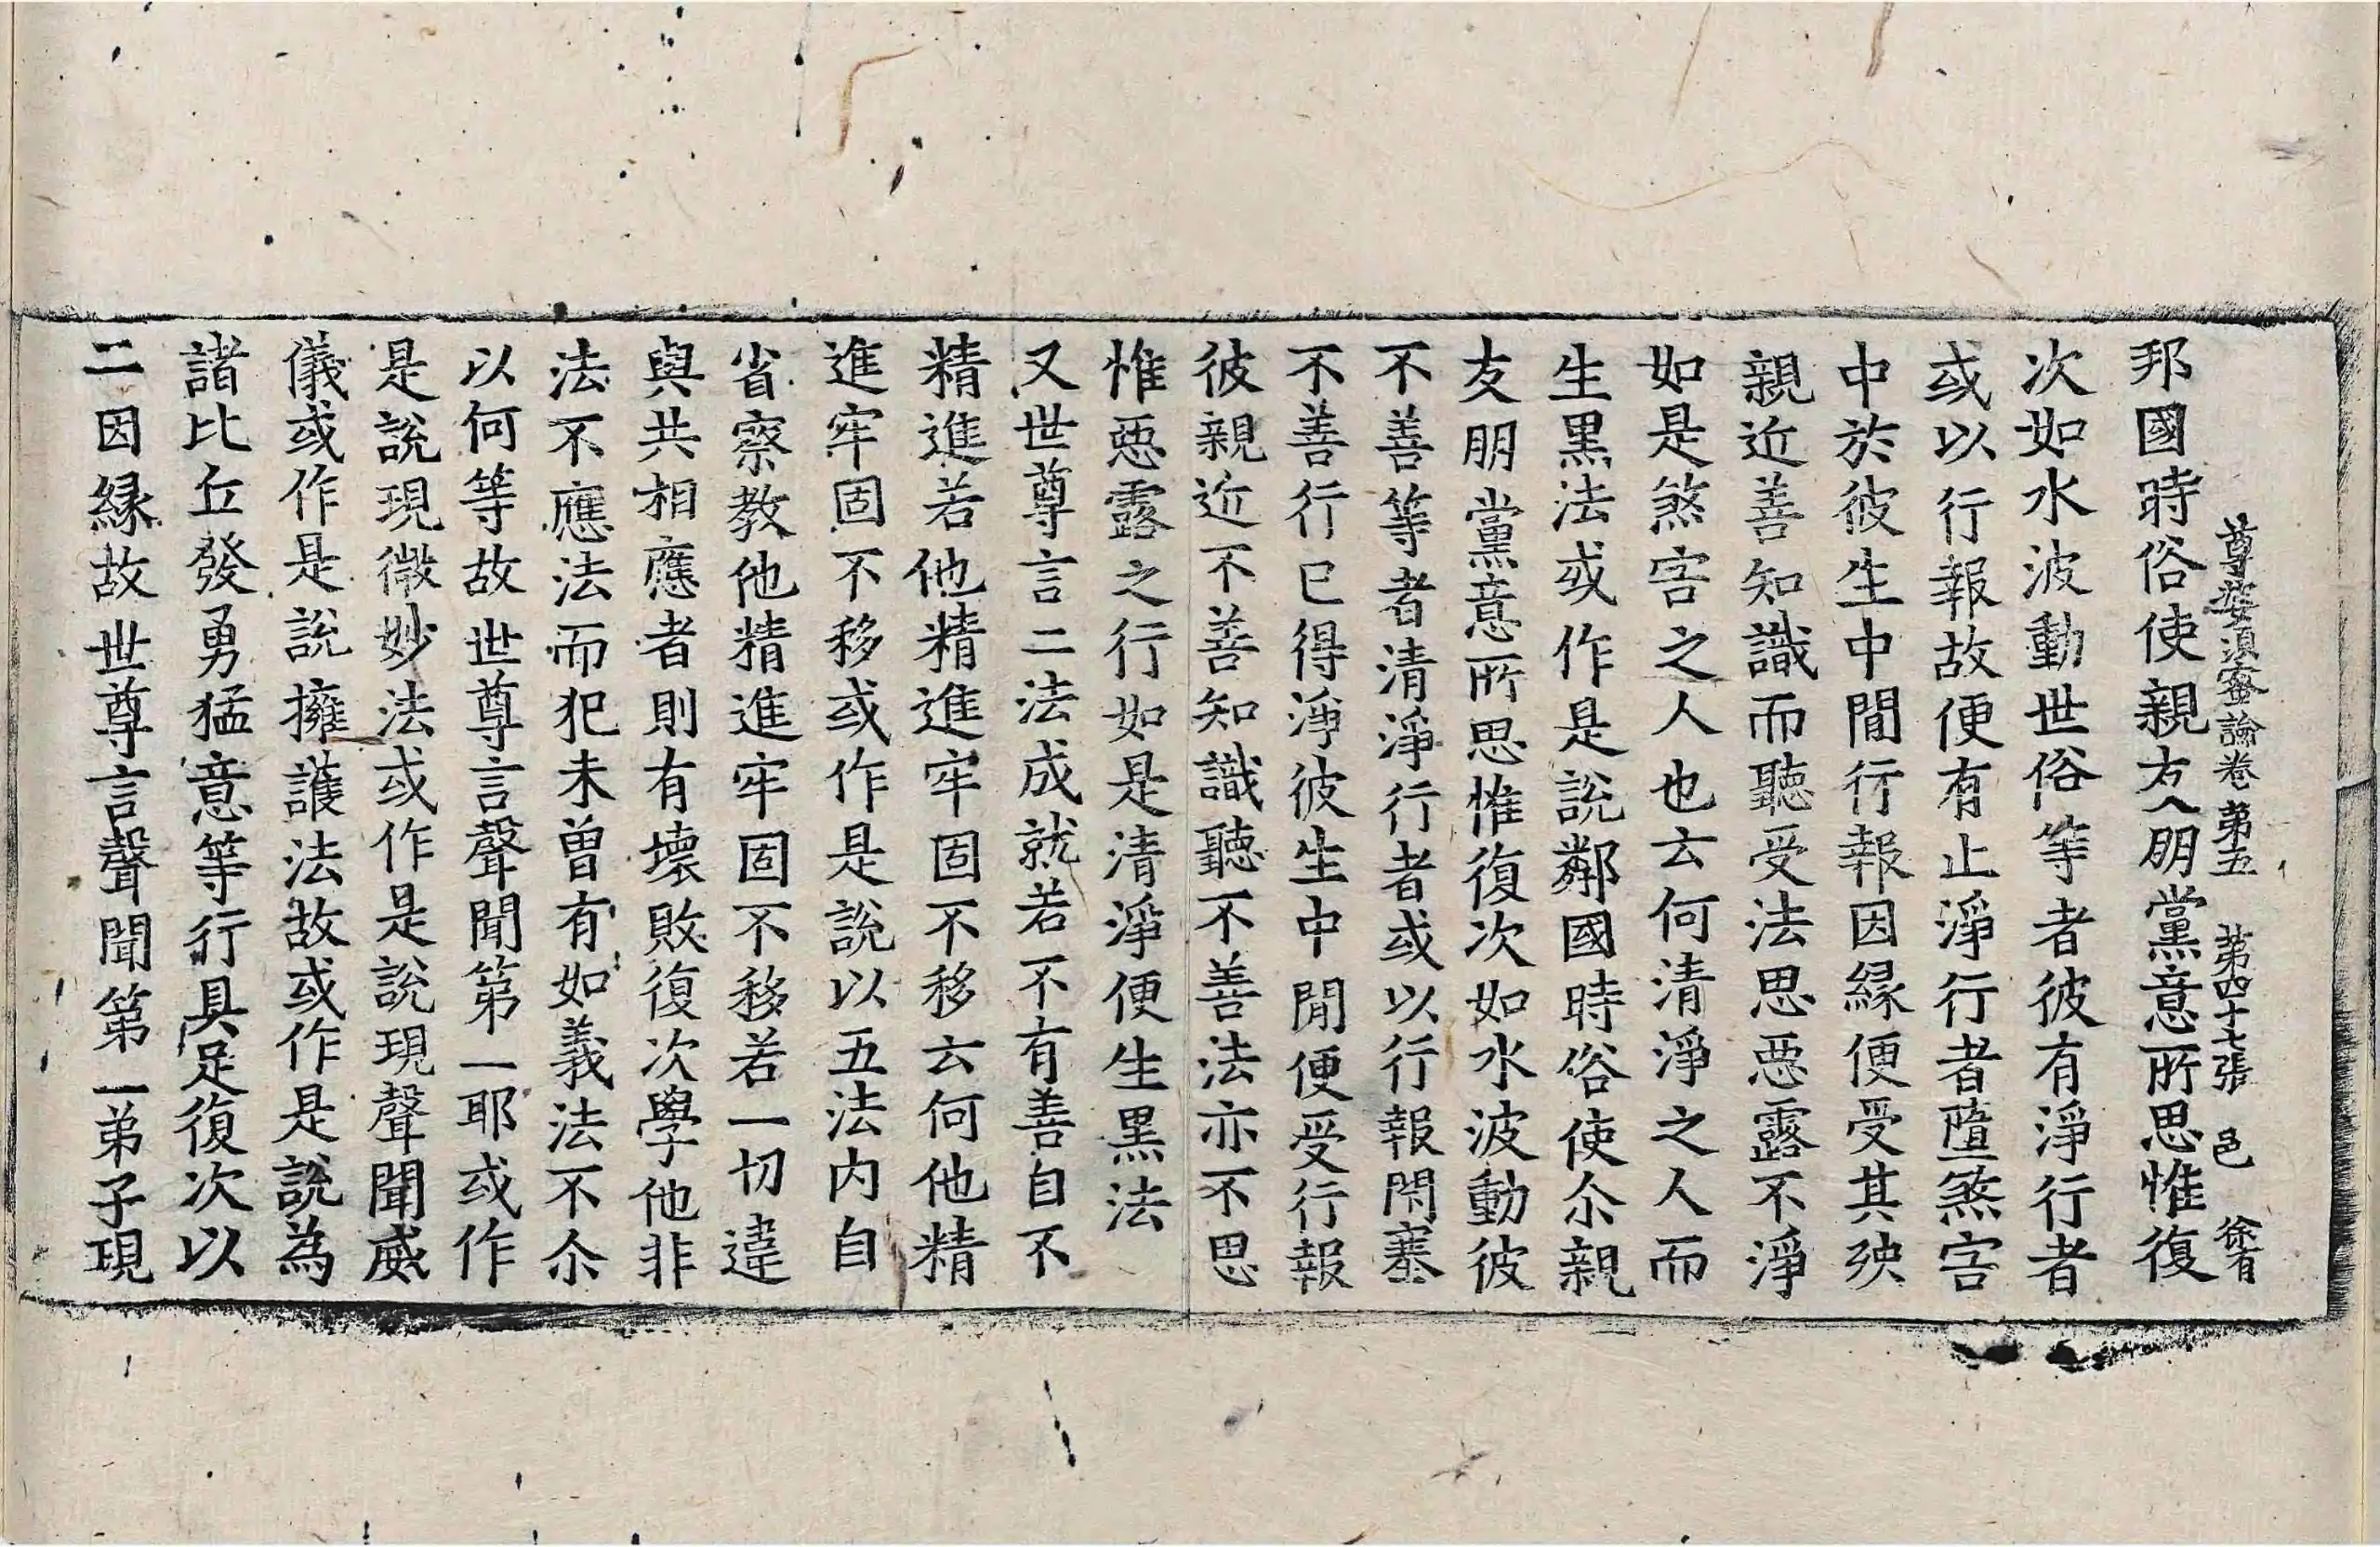 尊婆須蜜論卷第五　第四十七張　邑　徐肴
邦國時俗使親友人朋黨意所思惟復
次如水波動世俗等者彼有淨行者
或以行報故便有止淨行者墮煞害
中於彼生中間行報因緣便受其殃
親近善知識而聽受法思惡露不淨
如是煞害之人也云何清淨之人而
生黑法或作是說鄰國時俗使尒親
友朋黨意所思惟復次如水波動彼
不善等者清淨行者或以行報閇塞
不善行已得淨彼生中間便受行報
彼親近不善知識聽不善法亦不思
惟惡露之行如是清淨便生黑法
又世尊言二法成就若不有善自不
精進若他精進牢固不移云何他精
進牢固不移或作是說以五法內自
省察教他精進牢固不移若一切違
與共相應者則有壞敗復次學他非
法不應法而犯未曾有如義法不尒
以何等故世尊言聲聞第一耶或作
是說現微妙法或作是說現聲聞威
儀或作是說擁護法故或作是說為
諸比丘發勇猛意等行具足復次以
二因緣故世尊言聲聞第一弟子現